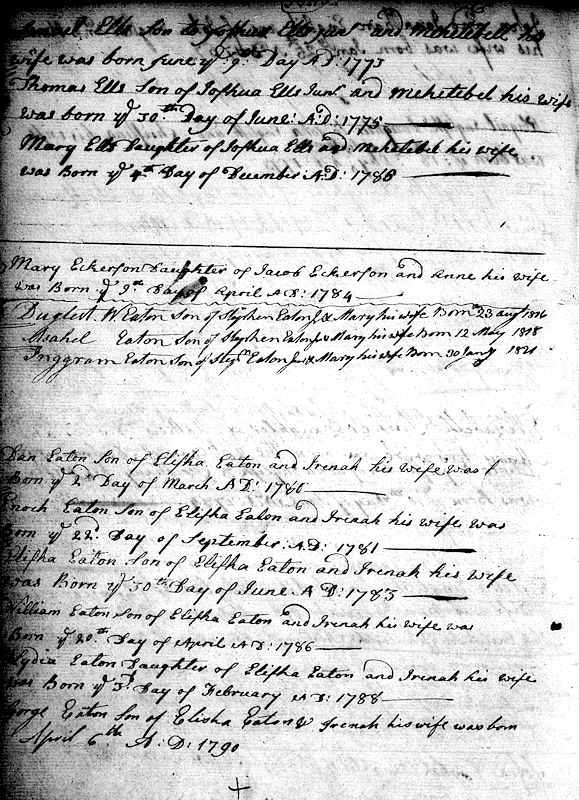 Son to Joshua Ells Junr and Mehetebell his
wife was born June ye 9th Day A:D: 1773
Thomas Ells Son of Joshua Ells Junr and Mehetebel his wife
was born ye 30th Day of June: A:D: 1775
Mary Ells Daughter of Joshua Ells and Mehetebel his wife
was Born ye 4th Day of December A:D: 178
Mary Eckerson Daughter of Jacob Eckerson and Anne his wife
was Born ye 9th Day of April A:D: 1784
W Eaton Son of Stephen Eaton Jr & Mary his wife Born 23 augt 1816
Asahel Eaton Son of Stephen Eaton Jr & Mary his wife Born 12 May 1818
Inggram Eaton Son of Stepn Eaton Jr & Mary his wife Born 30 Jany 1821
Dan Eaton Son of Elisha Eaton and Irenah his wife was
Born ye 2nd Day of March A:D: 1780
Enoch Eaton Son of Elisha Eaton and Irenah his wife was
Born ye 22d Day of September: A:D: 1781
Elisha Eaton Son of Elisha Eaton and Irenah his wife
was Born ye 30th Day of June A:D: 1783
William Eaton Son of Elisha Eaton and Irenah his wife was
Born ye 20th Day of April A:D: 1786
Lydia Eaton Daughter of Elisha Eaton and Irenah his wife
was Born ye 3d Day of February A:D: 1788
Gorge Eaton Son of Elisha Eaton & Irenah his wife was born
April 6th A:D: 1790